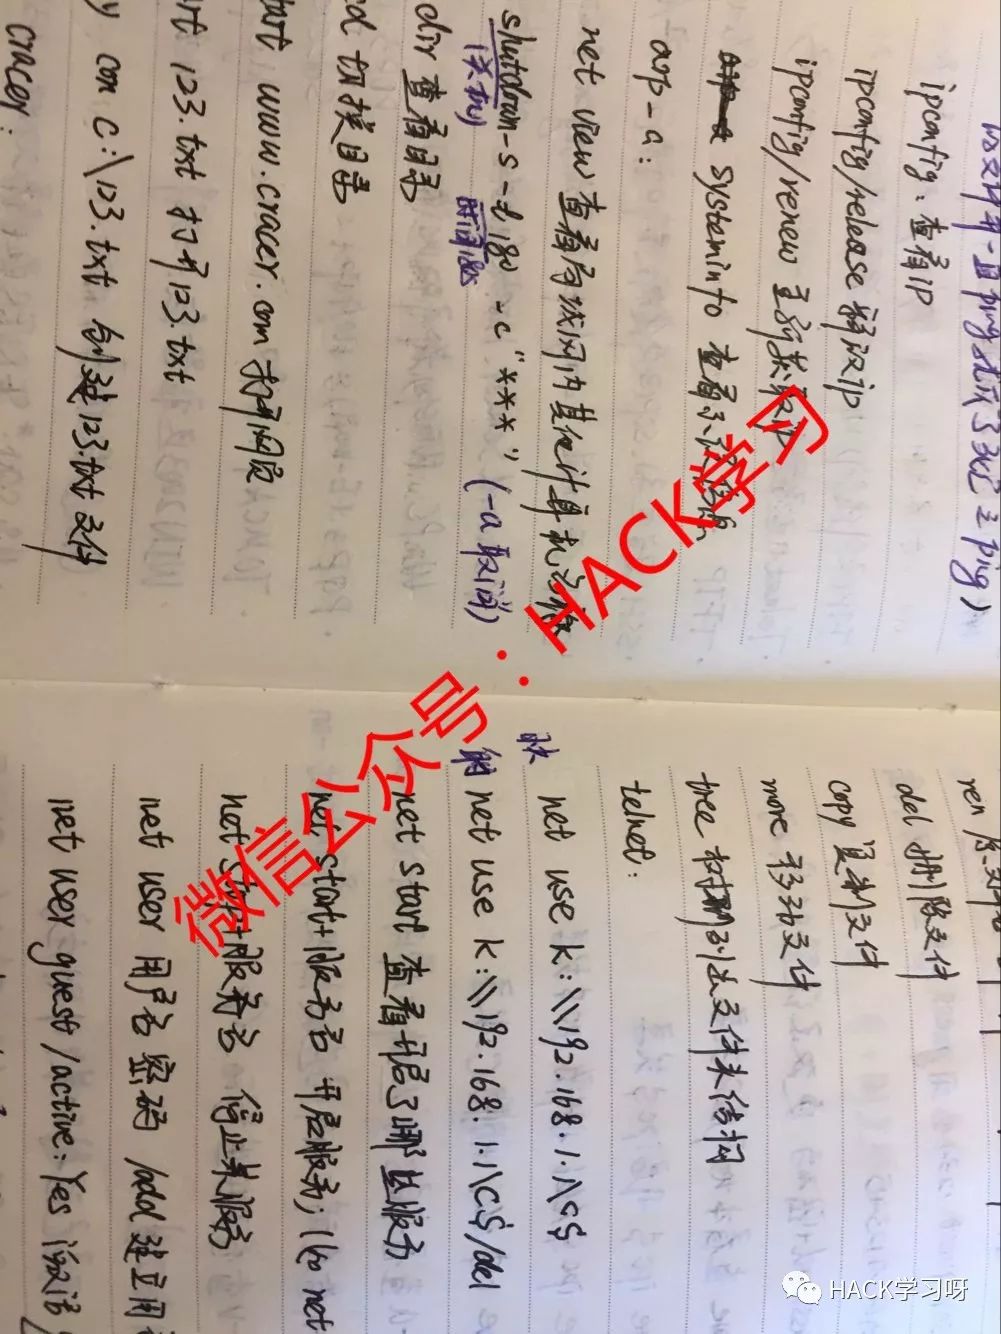 ipconfig：查看IP
ipconfig/release 释放ip
ipconfig/renew 重新获取IP
systeminfo 查看系统信息
arp-a：
net view 查看局域网内其他计算机名称
shutdown-s-t 180 -c "***" (-a 取消)
(关机) 时间180s
dir 查看目录
切换目录
www.cracer.com 打开网页
123.txt 打开123.txt
con c:\123.txt 创建123.txt文件
cracer：
ren
del 删除文件
copy 复制文件
more 移动文件
tree 树形列出文件夹结构
telnet：
映 net use k:\\192.168.1.1\c$
射 net use k:\\192.168.1.1\c$/del
net start 查看开启了哪些服务
net start+服务名 开启服务；(如 net
服务名 停止某服务
net user 用户名 密码 /add 建立用
net user guest /active: Yes 激活
微信公众号：HACK学习
HACK学习呀